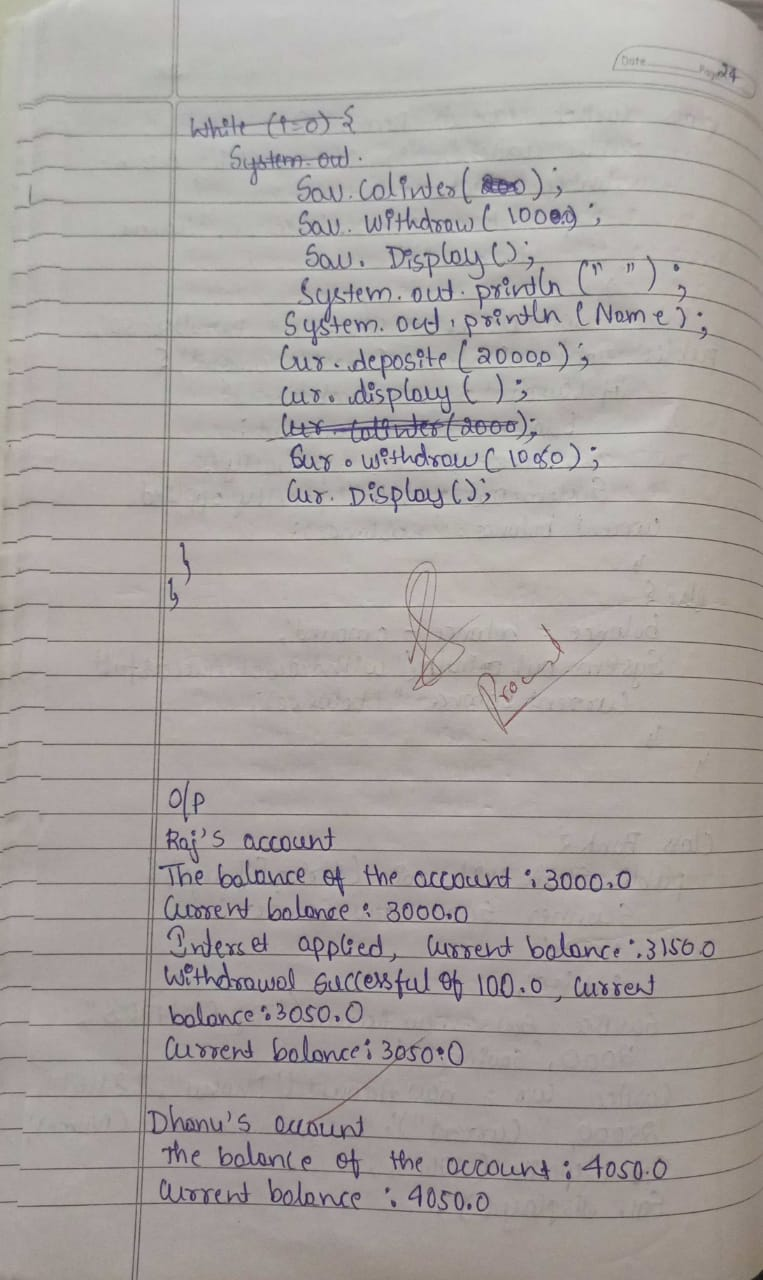 Date
Page 24
While (i=0) {
System.out.
Sav. Calinter( 200 );
Sav. Withdraw( 1000.0) ;
Sav. Display();
System.out.println (" ") ;
System.out.println (Name);
Cur. deposite (2000.0);
cur. display ( );
Cur. Calinter(2000);
Cur. withdraw( 100.0);
Cur. Display();
}
}
O/P
Raj's account
The balance of the account : 3000.0
Current balance : 3000.0
Interset applied, Current balance : 3150.0
Withdrawal Successful of 100.0, Current
balance : 3050.0
Current balance : 3050.0
Dhanu's account
The balance of the account : 4050.0
Current balance : 4050.0